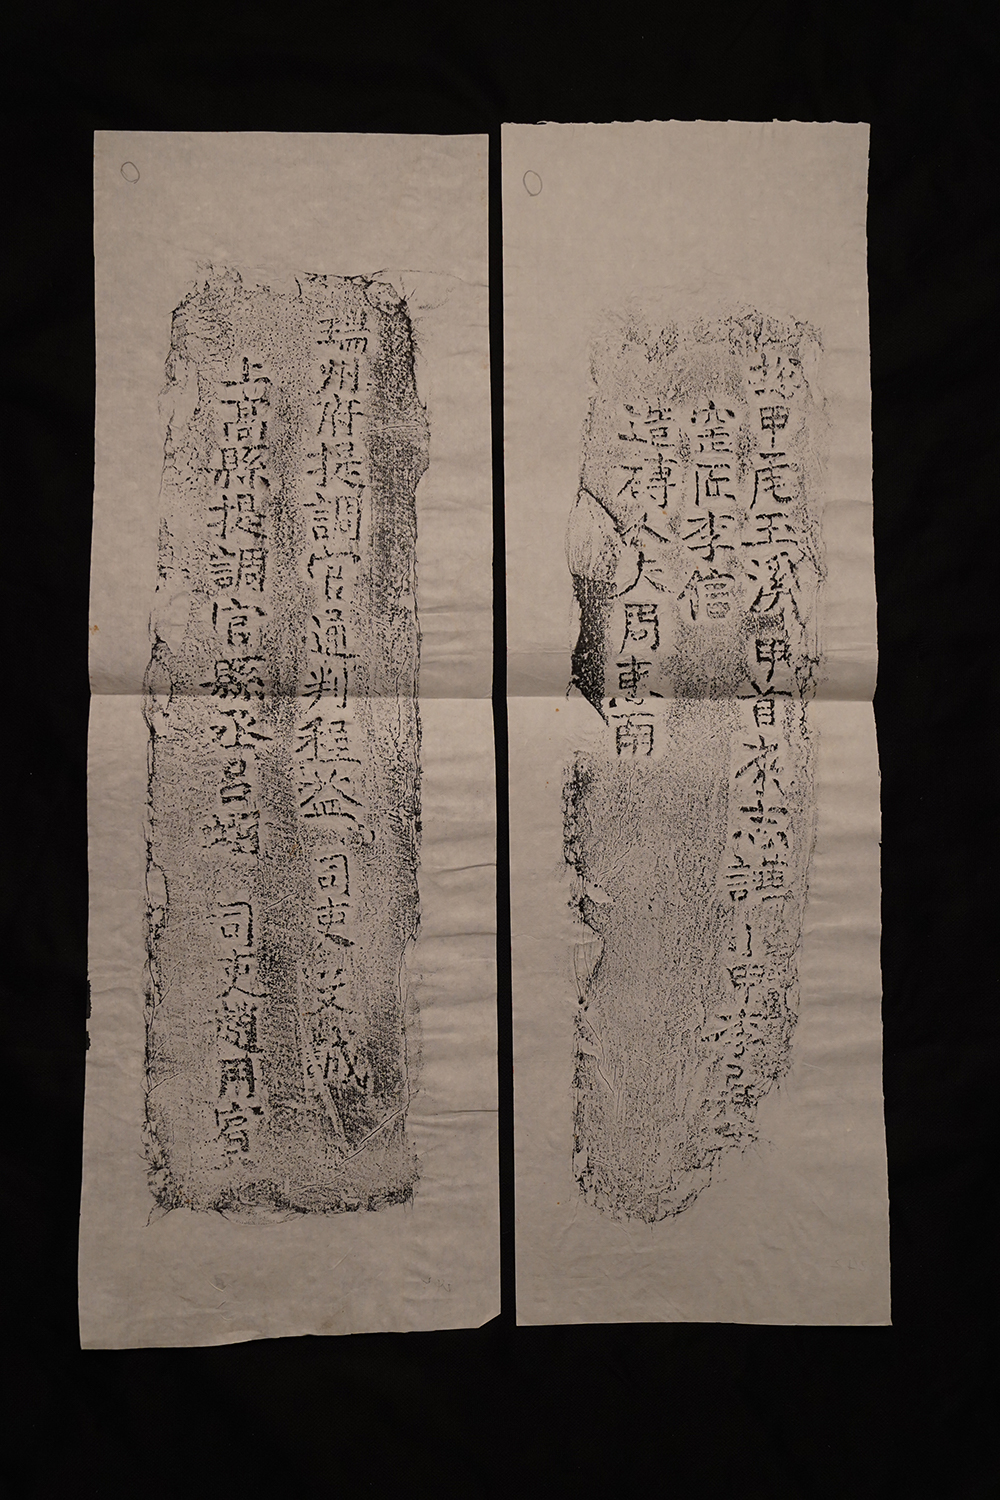 瑞州府提調官通判程益 司吏艾誠
上高縣提調官縣丞呂 司吏用賓
總甲盧玉溪甲首志小甲李
窯匠李信
造磚人夫周南